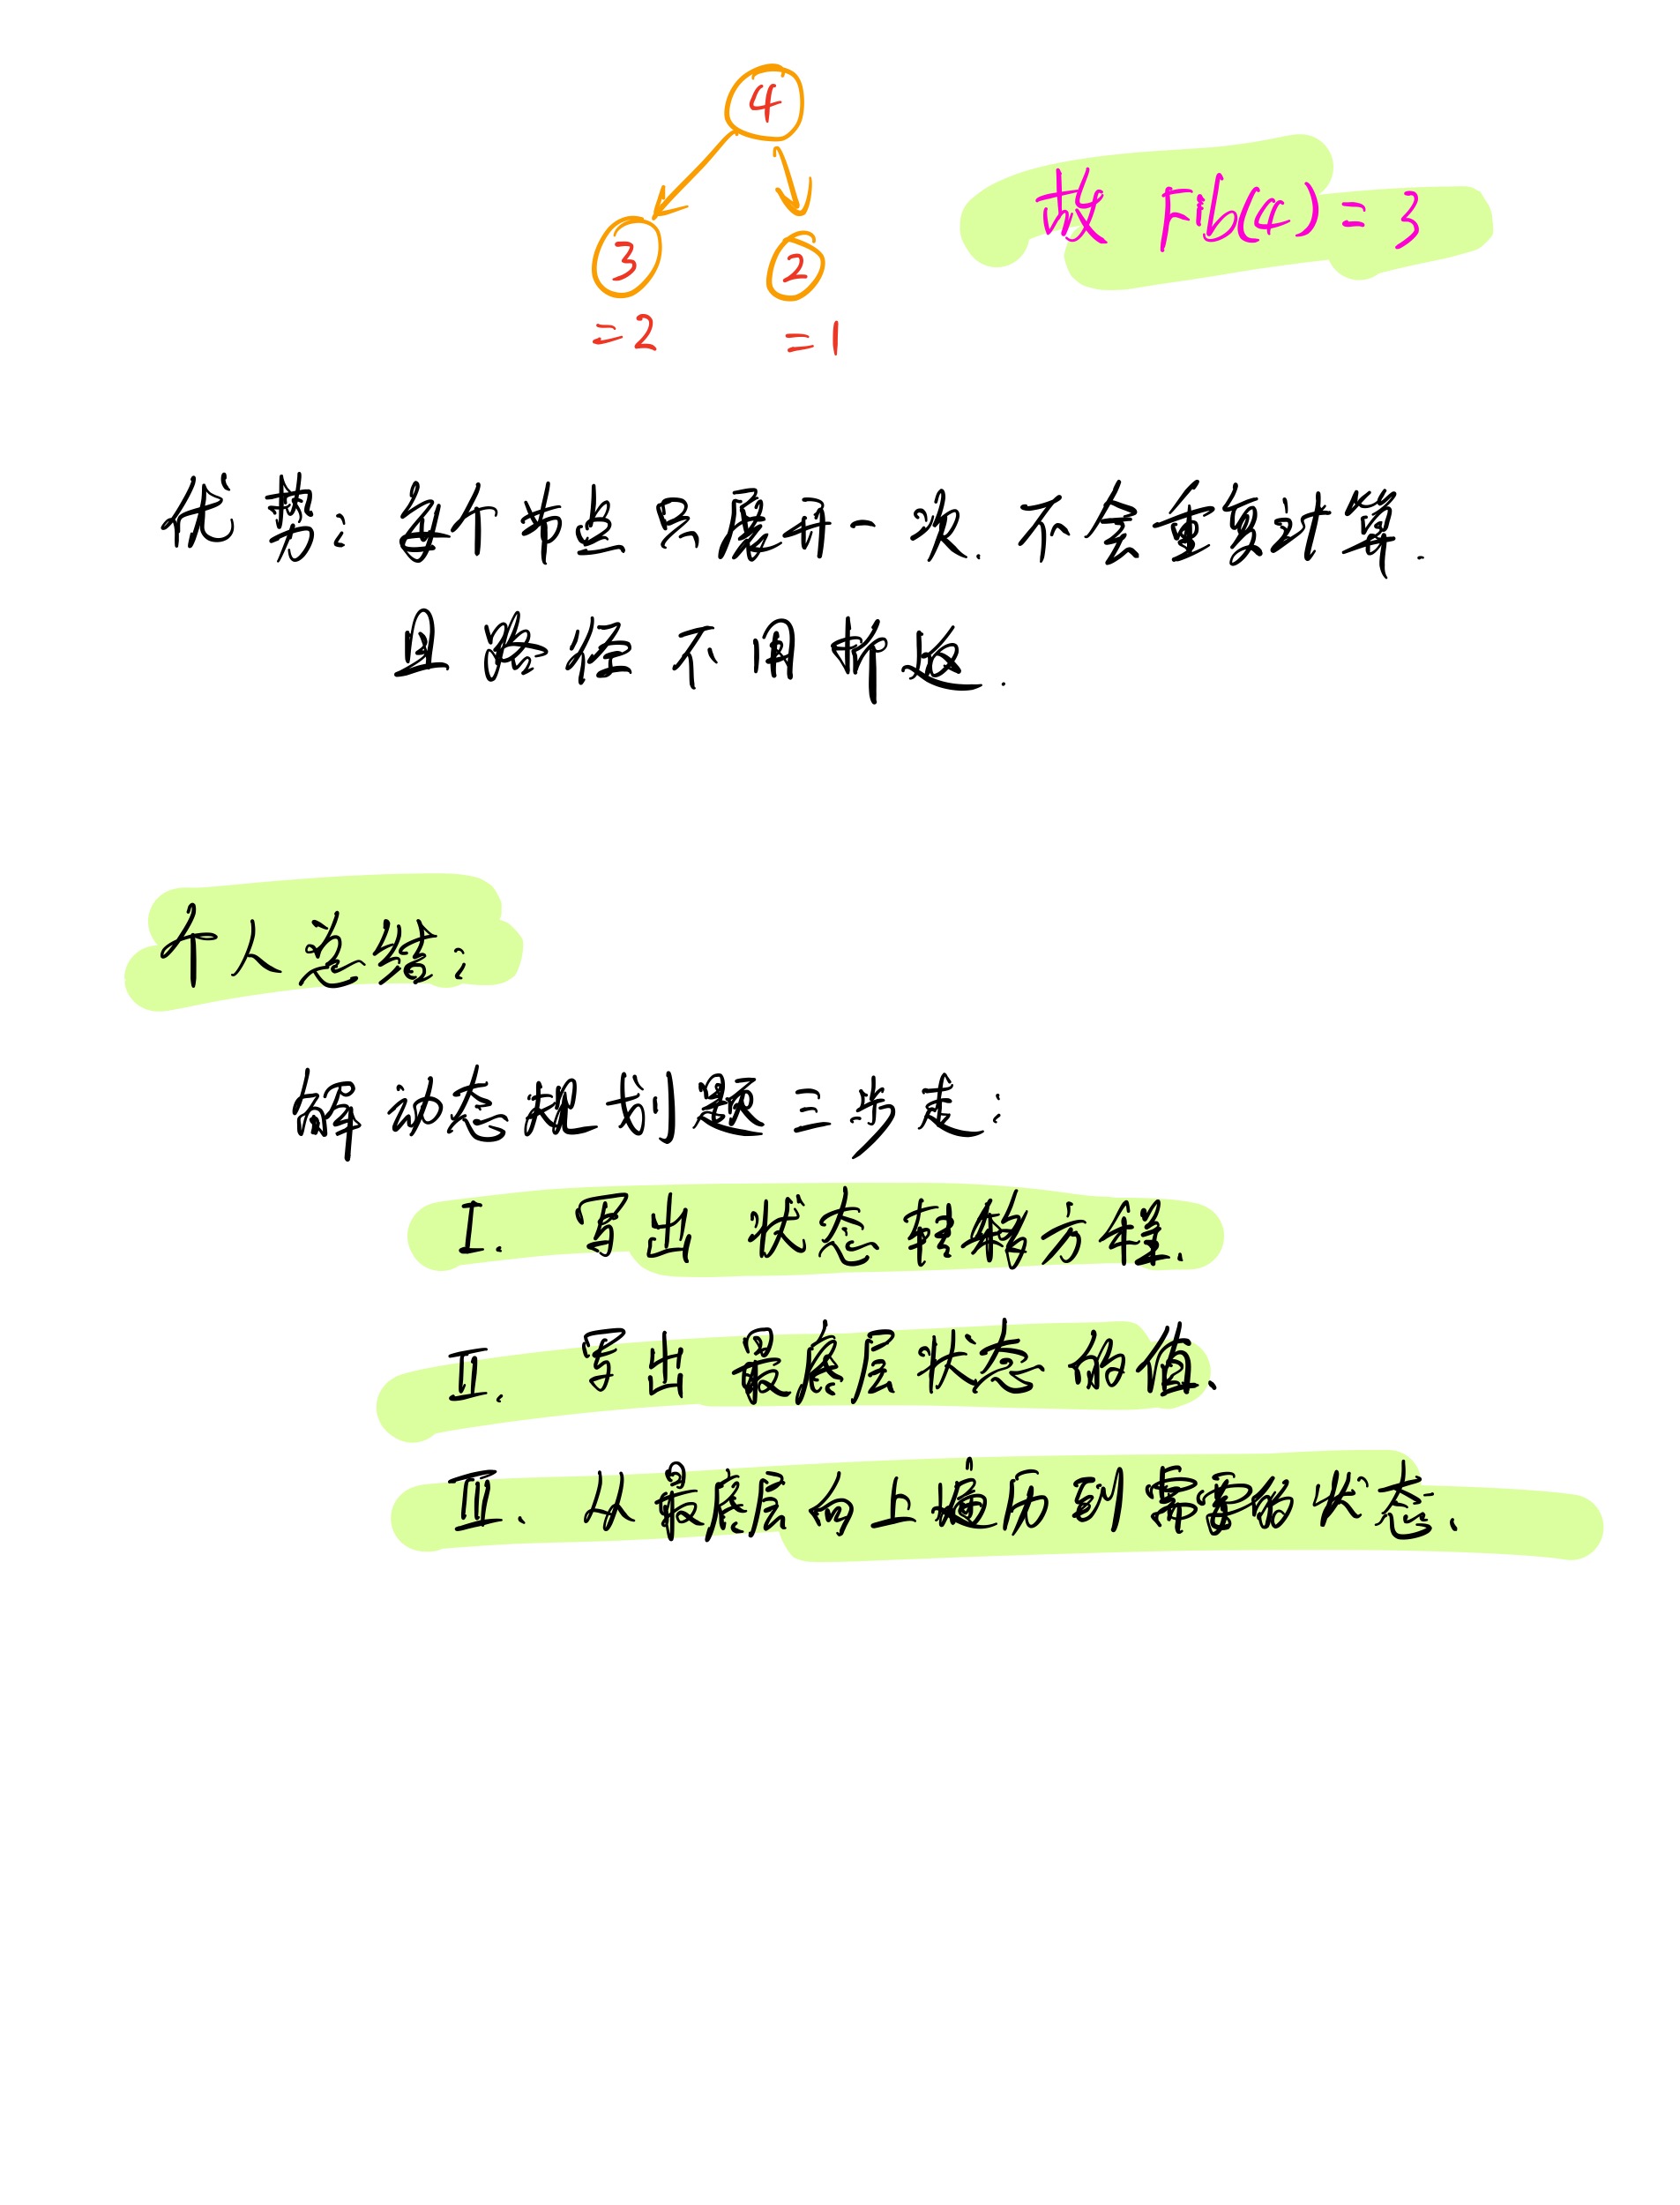 4
故 Fib(4) = 3
3 2
=2 =1
优势：每个节点只展开一次.不会重复计算.
且路径不用折返.
个人总结：
解动态规划题三步走：
I. 写出 状态转移方程.
II. 写出 最底层状态的值.
III. 从最底层向上遍历到需要的状态.